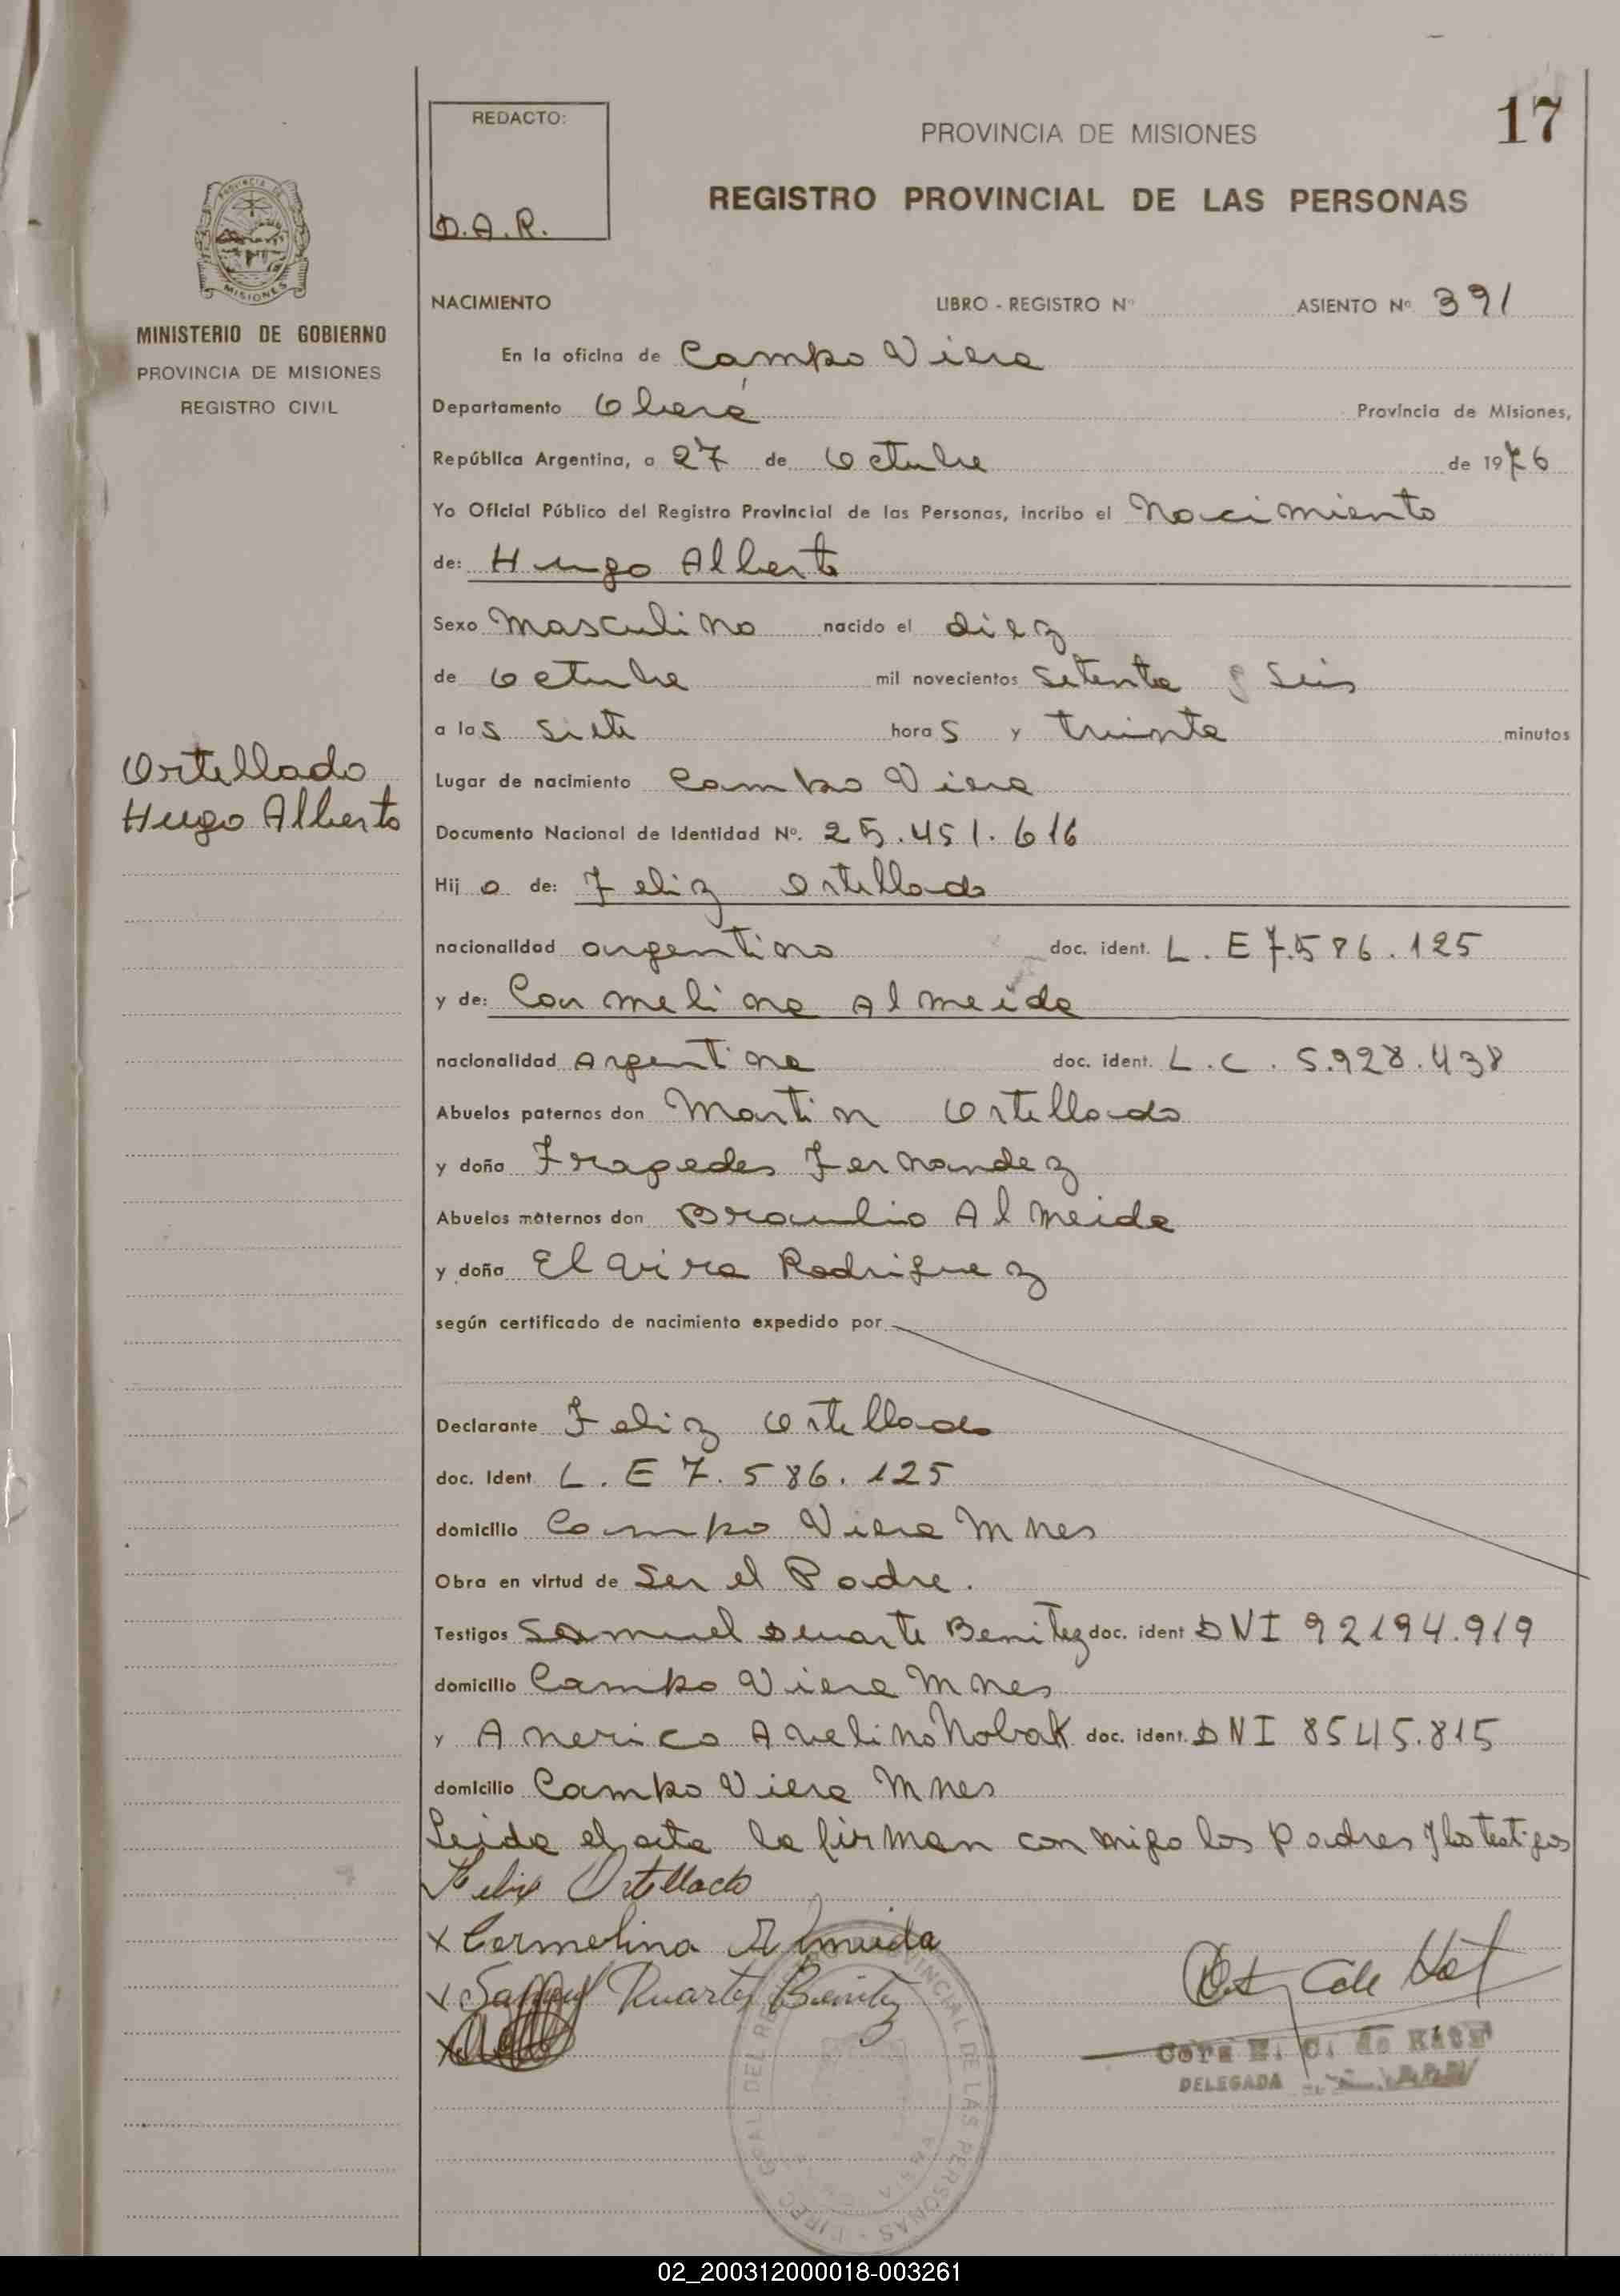 17
REDACTO:
D.A.R.
PROVINCIA DE MISIONES
REGISTRO PROVINCIAL DE LAS PERSONAS
PROVINCIA DE
MISIONES
MINISTERIO DE GOBIERNO
PROVINCIA DE MISIONES
REGISTRO CIVIL
NACIMIENTO LIBRO - REGISTRO Nº ASIENTO Nº 391
En la oficina de Campo Viera
Departamento Oberá Provincia de Misiones,
República Argentina, a 27 de Octubre de 1976
Yo Oficial Público del Registro Provincial de las Personas, incribo el Nacimiento
de: Hugo Alberto
Sexo Masculino nacido el diez
de Octubre mil novecientos Setenta y Seis
a las Siete horas y treinta minutos
Ortellado
Hugo Alberto
Lugar de nacimiento Campo Viera
Documento Nacional de Identidad Nº. 25.451.616
Hijo de: Feliz Ortellado
nacionalidad argentino doc. ident. L.E 7.586.125
y de: Carmelina Almeida
nacionalidad Argentina doc. ident. L.C. 5.928.438
Abuelos paternos don Martin Ortellado
y doña Fragedes Fernandez
Abuelos maternos don Braulio Almeida
y doña Elvira Rodriguez
según certificado de nacimiento expedido por
Declarante Feliz Ortellado
doc. Ident L.E 7.586.125
domicilio Campo Viera Mnes
Obra en virtud de Ser el Padre.
Testigos Samuel Duarte Benitez doc. ident DNI 92194.919
domicilio Campo Viera Mnes
y Americo Avelino Nobak doc. ident. DNI 8545.815
domicilio Campo Viera Mnes
Leida el acta la firman conmigo los Padres y los testigos
Felix Ortellado
x Carmelina Almeida
x Samuel Duarte Benitez
x
DELEGADA
02_200312000018-003261